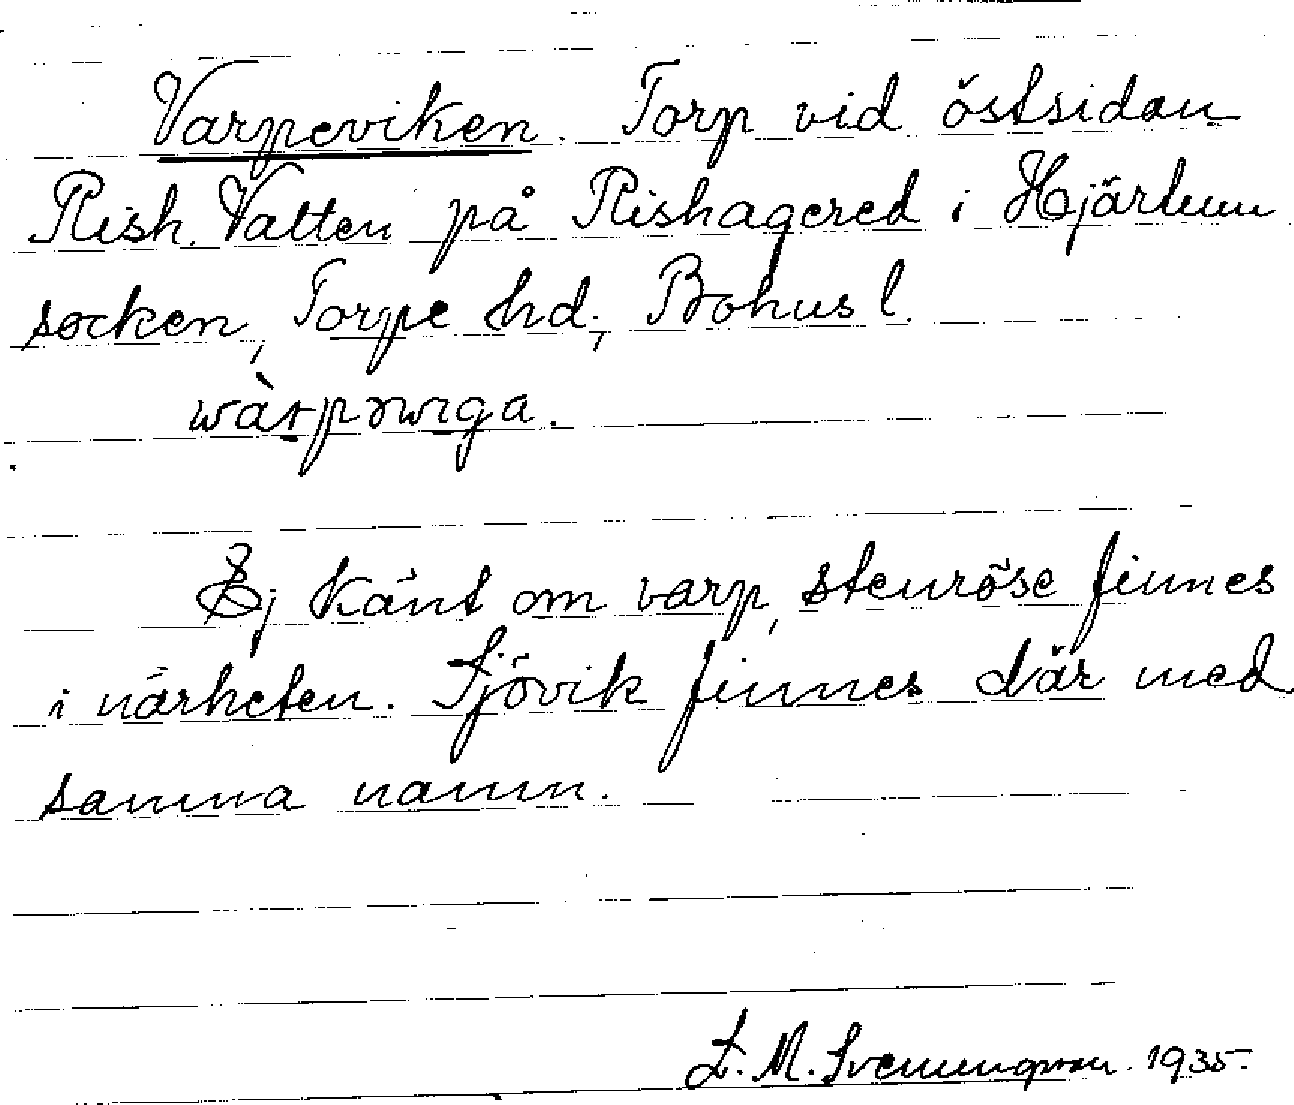 Varpeviken. Torp vid östsidan
Rish. Vatten på Rishagered i Hjärtum
socken, Torpe hd; Bohus l.
wàrpəwıga.
Ej känt om varp, stenröse finnes
i närheten. Sjövik finnes där med
samma namn.
L. M. Svenungsson. 1935.